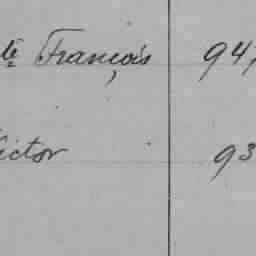 té François 94,
ictor 93